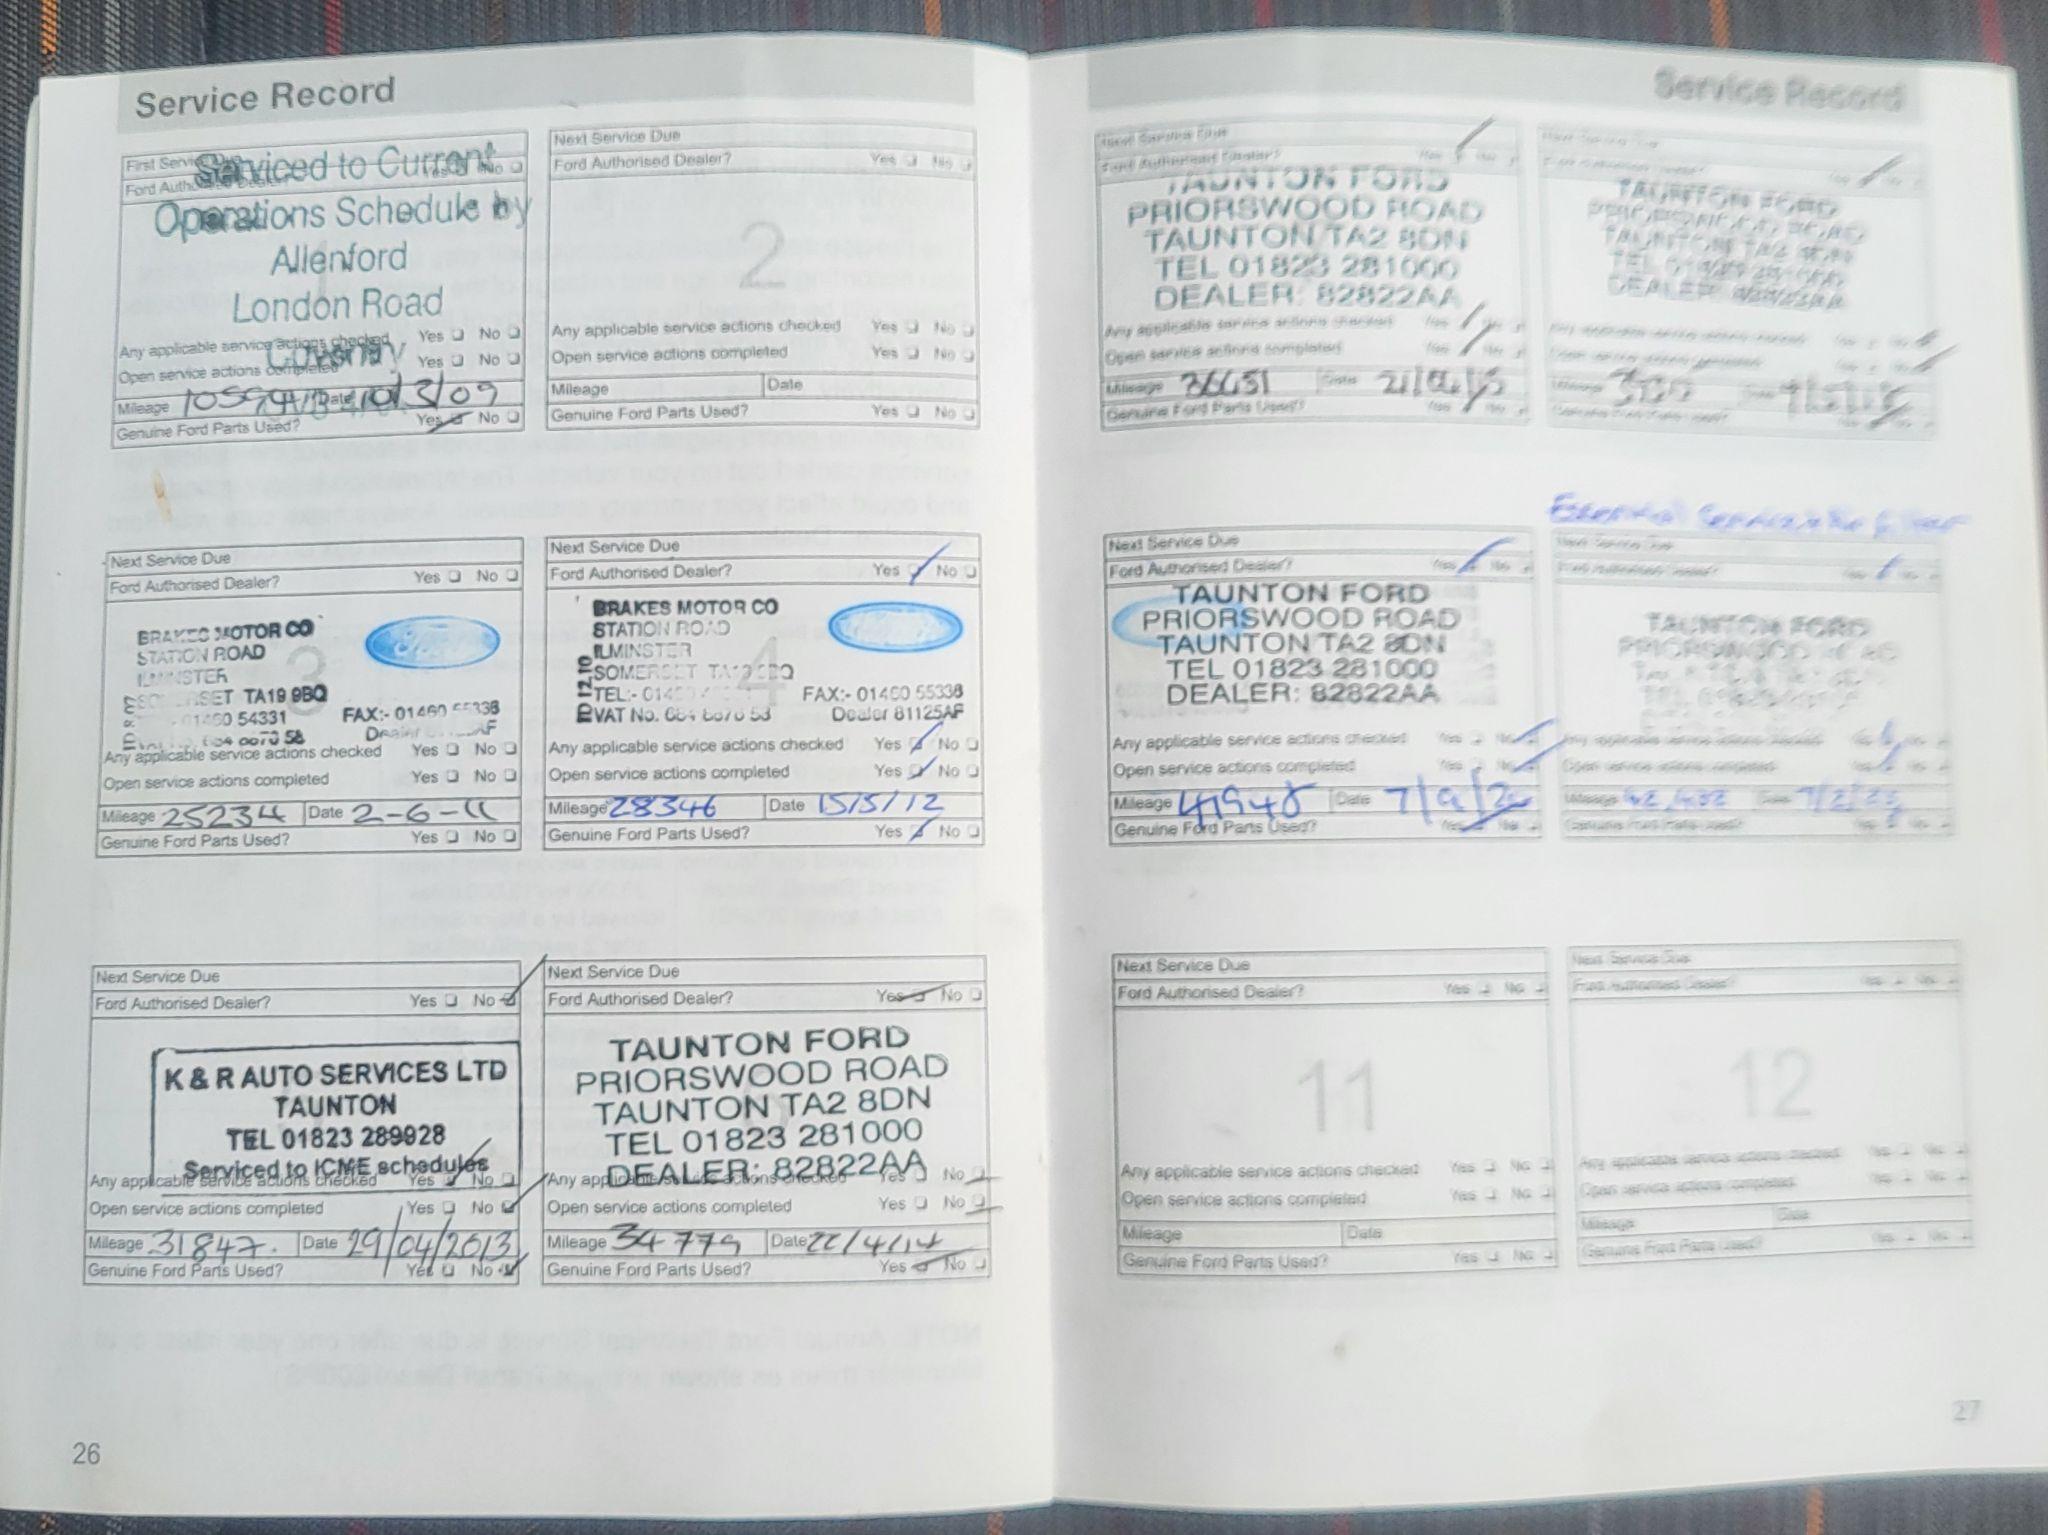 Service Record
First Service
Ford Authorised Dealer?
Yes No
Serviced to Current
Operations Schedule by
Allenford
London Road
Coventry
Any applicable service actions checked Yes No
Open service actions completed Yes No
Mileage Date 10/3/09
Genuine Ford Parts Used? Yes No
Next Service Due
Ford Authorised Dealer? Yes No
2
Any applicable service actions checked Yes No
Open service actions completed Yes No
Mileage Date
Genuine Ford Parts Used? Yes No
Next Service Due
Ford Authorised Dealer? Yes No
3
BRAKES MOTOR CO
STATION ROAD
ILMINSTER
SOMERSET TA19 9BQ
01460 54331 FAX:- 01460 55336
Any applicable service actions checked Yes No
Open service actions completed Yes No
Mileage 25234 Date 2-6-11
Genuine Ford Parts Used? Yes No
Next Service Due
Ford Authorised Dealer? Yes No
4
BRAKES MOTOR CO
STATION ROAD
ILMINSTER
SOMERSET
TEL:- FAX:- 01460 55336
VAT No. Dealer 81125AF
Any applicable service actions checked Yes No
Open service actions completed Yes No
Mileage 28346 Date 15/5/12
Genuine Ford Parts Used? Yes No
Next Service Due
Ford Authorised Dealer? Yes No
K & R AUTO SERVICES LTD
TAUNTON
TEL 01823 289928
Serviced to ICME schedules
Any applicable service actions checked Yes No
Open service actions completed Yes No
Mileage 31847. Date 29/04/2013
Genuine Ford Parts Used? Yes No
Next Service Due
Ford Authorised Dealer? Yes No
TAUNTON FORD
PRIORSWOOD ROAD
TAUNTON TA2 8DN
TEL 01823 281000
DEALER: 82822AA
Any applicable service actions checked Yes No
Open service actions completed Yes No
Mileage 34779 Date 22/4/14
Genuine Ford Parts Used? Yes No
26
Service Record
Next Service Due
Ford Authorised Dealer? Yes No
TAUNTON FORD
PRIORSWOOD ROAD
TAUNTON TA2 8DN
TEL 01823 281000
DEALER: 82822AA
Any applicable service actions checked Yes No
Open service actions completed Yes No
Mileage 36651 Date
Genuine Ford Parts Used? Yes No
TAUNTON FORD
PRIORSWOOD ROAD
TAUNTON TA2 8DN
DEALER
Mileage
Next Service Due
Ford Authorised Dealer? Yes No
TAUNTON FORD
PRIORSWOOD ROAD
TAUNTON TA2 8DN
TEL 01823 281000
DEALER: 82822AA
Any applicable service actions checked Yes No
Open service actions completed Yes No
Mileage 41948 Date
Genuine Ford Parts Used? Yes No
Essential Service
Next Service Due
TAUNTON FORD
PRIORSWOOD
Any applicable service actions checked
Open service actions completed
Mileage
Genuine Ford Parts Used?
Next Service Due
Ford Authorised Dealer? Yes No
11
Any applicable service actions checked Yes No
Open service actions completed Yes No
Mileage Date
Genuine Ford Parts Used? Yes No
Next Service Due
Ford Authorised Dealer? Yes No
12
Any applicable service actions checked Yes No
Open service actions completed Yes No
Mileage Date
Genuine Ford Parts Used? Yes No
27